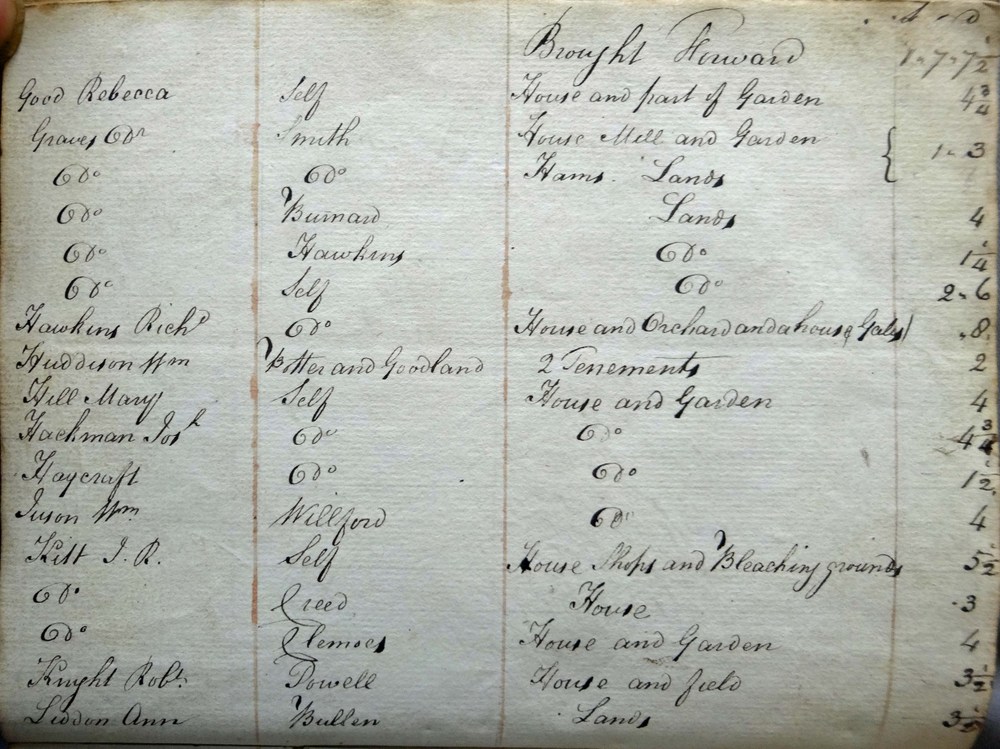 Brought Forward 1 - 7 - 7 1/2
Good Rebecca Self House and part of Garden 4 3/4
Graves Dr Smith House Mill and Garden
Do Do Hams. Lands 1 - 3
Do Burnard Lands 4
Do Hawkins Do 1 1/4
Do Self Do 2 - 6
Hawkins Richd Do House and Orchard and a house 8
Huddison Wm Potter and Goodland 2 Tenements 2
Hill Mary Self House and Garden 4
Hackman Josh Do Do 4 3/4
Haycraft Do Do 1 1/2
Juson Wm Willford Do 4
Kitt J. R. Self House Shops and Bleaching grounds 5 1/2
Do Creed House 3
Do Clemoes House and Garden 4
Knight Robt. Dowell House and field 3 1/2
Liddon Ann Bullen Lands 3 1/2